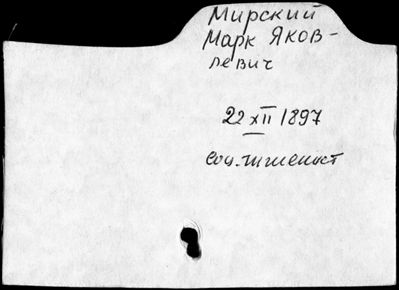 Мирский
Марк Яков-
левич
22 XII 1897
соц. гигиенист